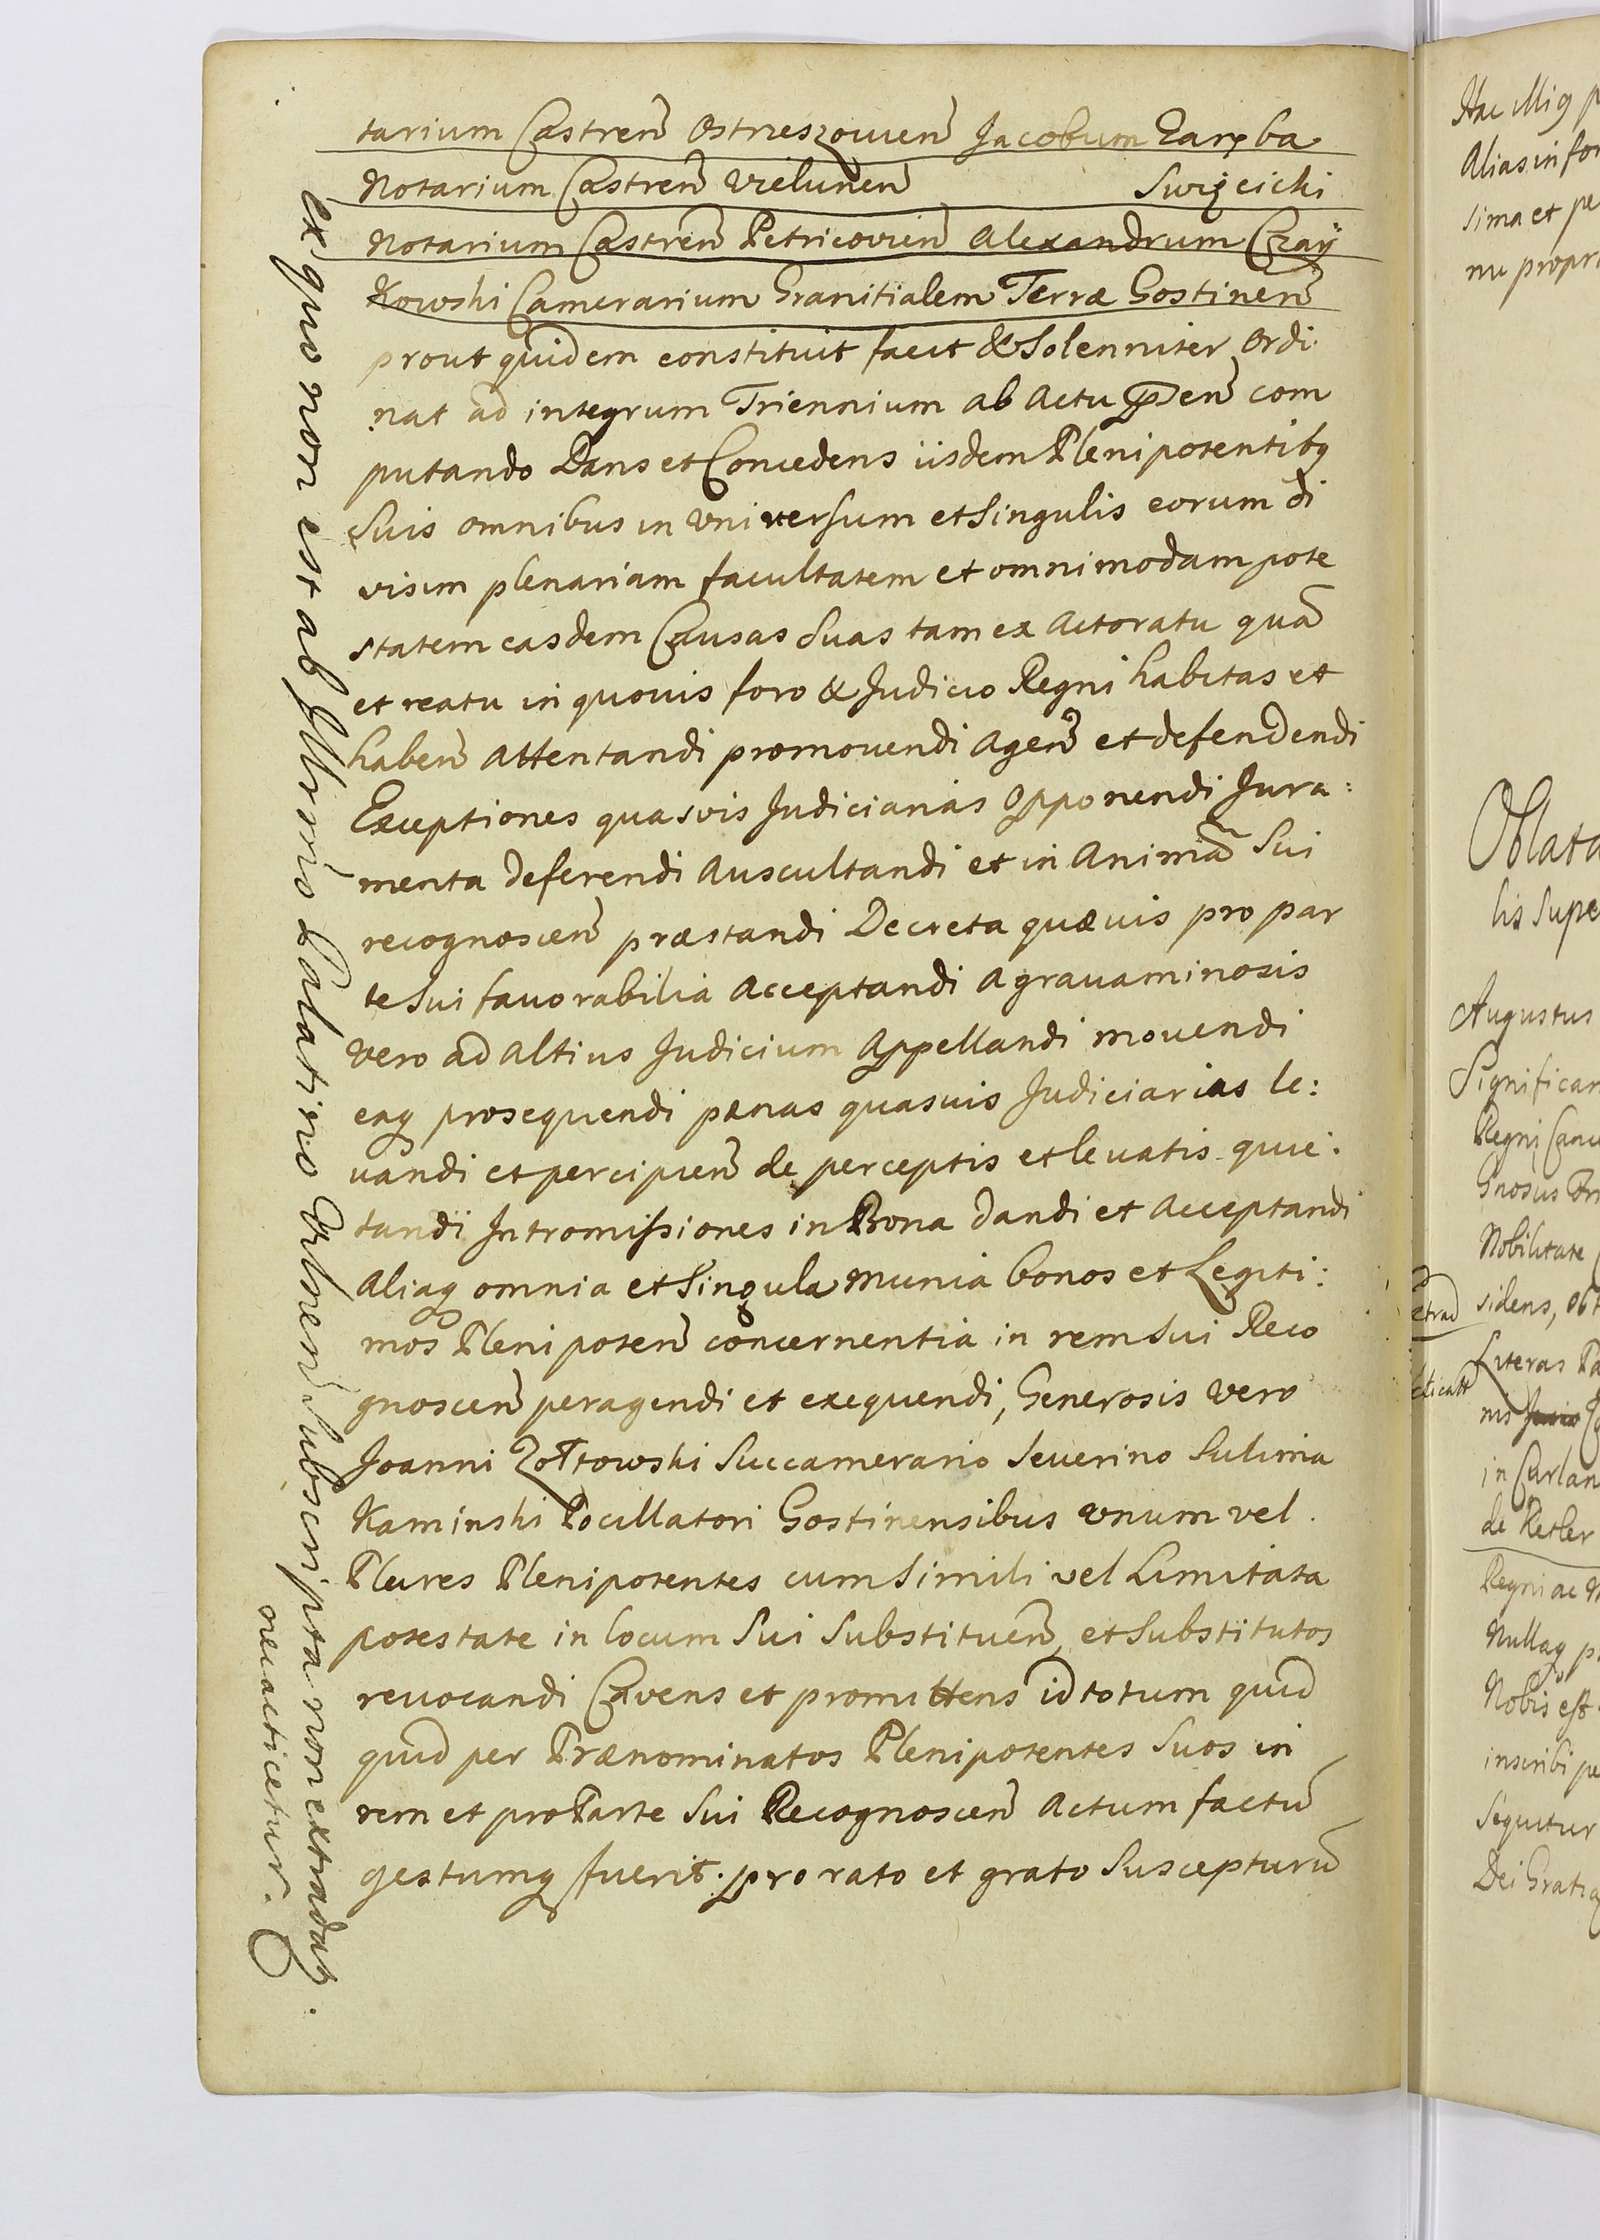 tarium Castren̄ Ostrzeszovien̄ Jacobum Zaręba
Notarium Castren̄ Vielunen̄ Swięcicki
Notarium Castren̄ Petricovien̄ Alexandrum Czaÿ
Kowski Camerarium Granitialem Terræ Gostinen̄
prout quidem constituit facit & Solenniter Ordi
nat ad integrum Triennium ab Actu p̄n̄ten̄ com
putando Dans et Concedens iisdem Plenipotentibq
Suis omnibus in Universum et Singulis eorum di
visim plenariam facultatem et omnimodam pote
statem easdem Causas Suas tam ex Actoratu quā
et reatu in quovis foro & Judicio Regni habitas et
haben̄ Attentandi promovendi Agen̄ et defendendi
Exceptiones quasvis Judiciarias Opponendi Jura:
menta deferendi Auscultandi et in Animā Sui
recognoscen̄ præstandi Decreta quævis pro par
te Sui favorabilia Acceptandi Agravaminosis
Vero ad Altius Judicium Appellandi movendi
eaq prosequendi pænas quasvis Judiciarias le:
vandi et percipien̄ de perceptis et levatis quie:
tandi Intromissiones in Bona dandi et Acceptandi
Aliaq omnia et Singula Munia bonos et Legiti:
mos Plenipoten̄ concernentia in rem Sui Reco
gnoscen̄ peragendi et exequendi, Generosis vero
Joanni Zołtowski Succamerario Severino Sulima
Kaminski Pocillatori Gostinensibus unum vel
Plures Plenipotentes cum Simili vel Limitata
potestate in locum Sui Substituen̄, et Substitutos
revocandi Cavens et promittens id totum quid
quid per Prænominatos Plenipotentes Suos in
rem et pro Parte Sui Recognoscen̄ Actum factū
gestumq fuerit. pro rato et grato Suscepturū
ex quo non est ab Palatino Subscripta non extradat̄.
nec acticetur.
Hac
Alias in for
sima et pe
nu propri
Oblata
lis Supe
Augustus
Significam
Regni Canc
Gnosus
Nobilitate
sidens, Obt
Literas Pa
nis
in Curlan
de Ketler
Regni ac
Nullaq p
Nobis est
inscribi pe
Sequitur
Dei Gratia